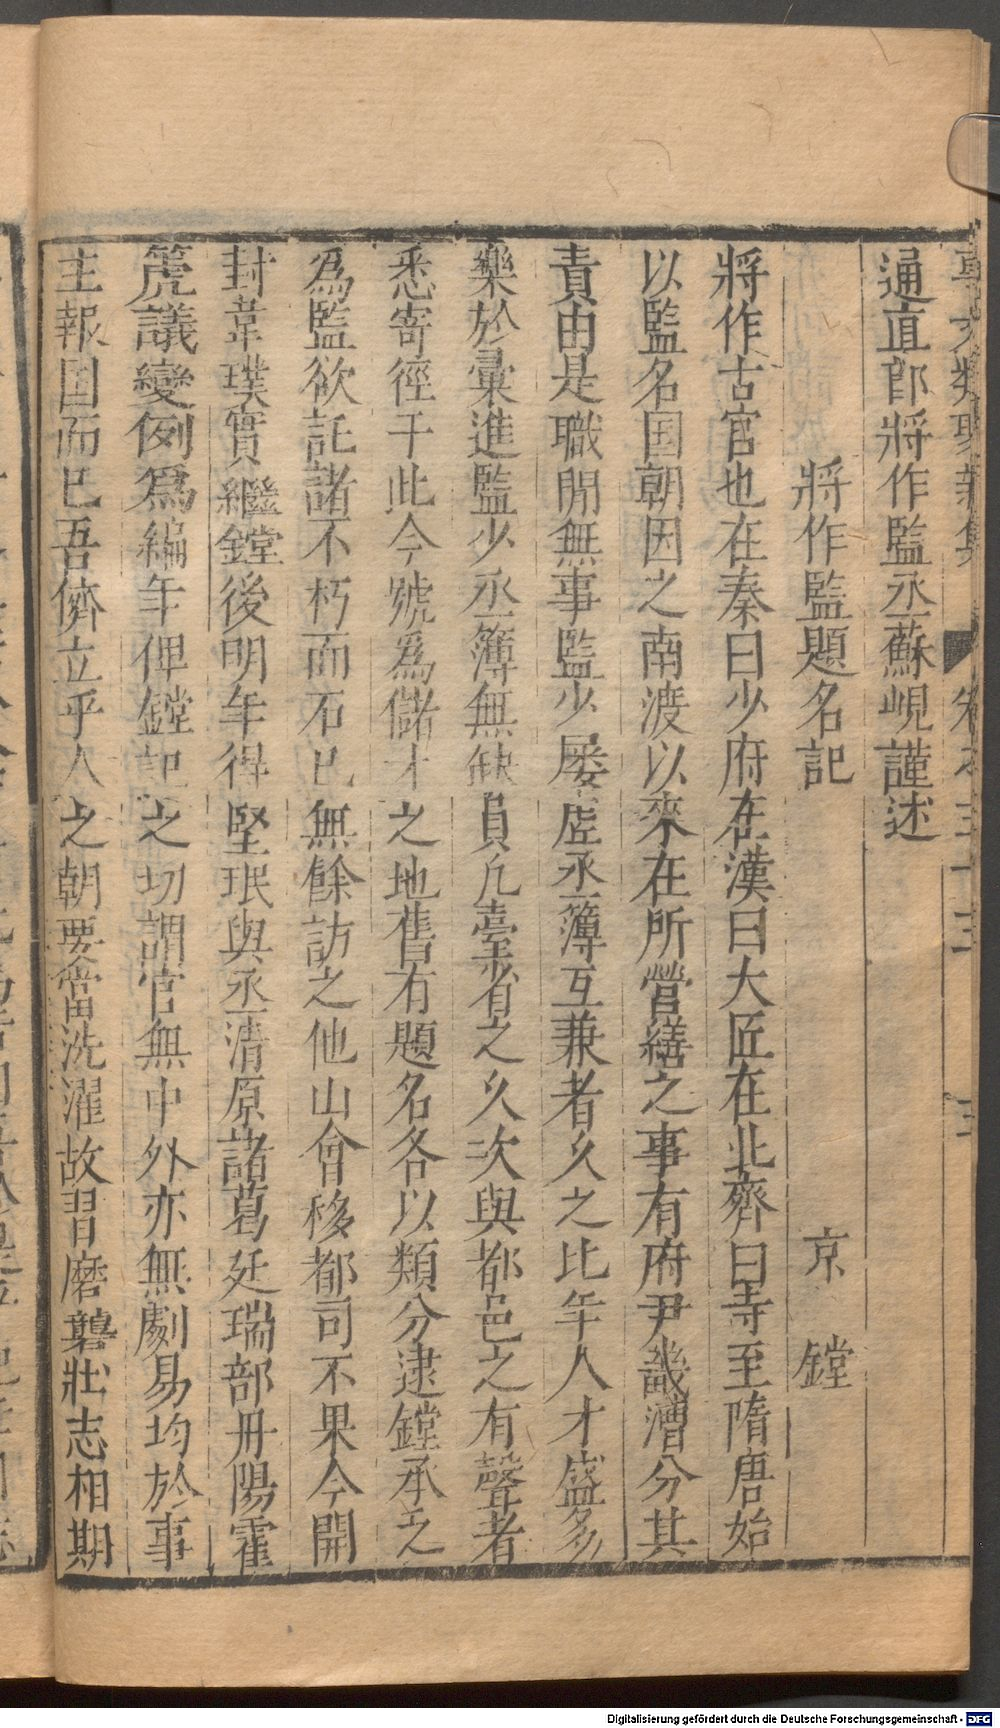 事文類聚新集　卷之三十三　三
通直郎將作監丞蘇峴謹述
將作監題名記　京　鏜
將作古官也在秦曰少府在漢曰大匠在北齊曰寺至隋唐始
以監名国朝因之南渡以來在所營繕之事有府尹畿漕分其
責由是職閒無事監少屡虛丞簿互兼者久之比年人才盛多
樂於彙進監少丞簿無缺員凡臺省之久次與都邑之有聲者
悉寄徑于此今號爲儲才之地舊有題名各以類分逮鏜承乏
爲監欲託諸不朽而石已無餘訪之他山會移都司不果今開
封韋璞實繼鏜後明年得堅珉與丞清原諸葛廷瑞部丹陽霍
箎議變例爲編年俾鏜記之切謂官無中外亦無劇易均於事
主報国而已吾儕立乎人之朝要當洗濯故習磨礱壯志相期
Digitalisierung gefördert durch die Deutsche Forschungsgemeinschaft - DFG